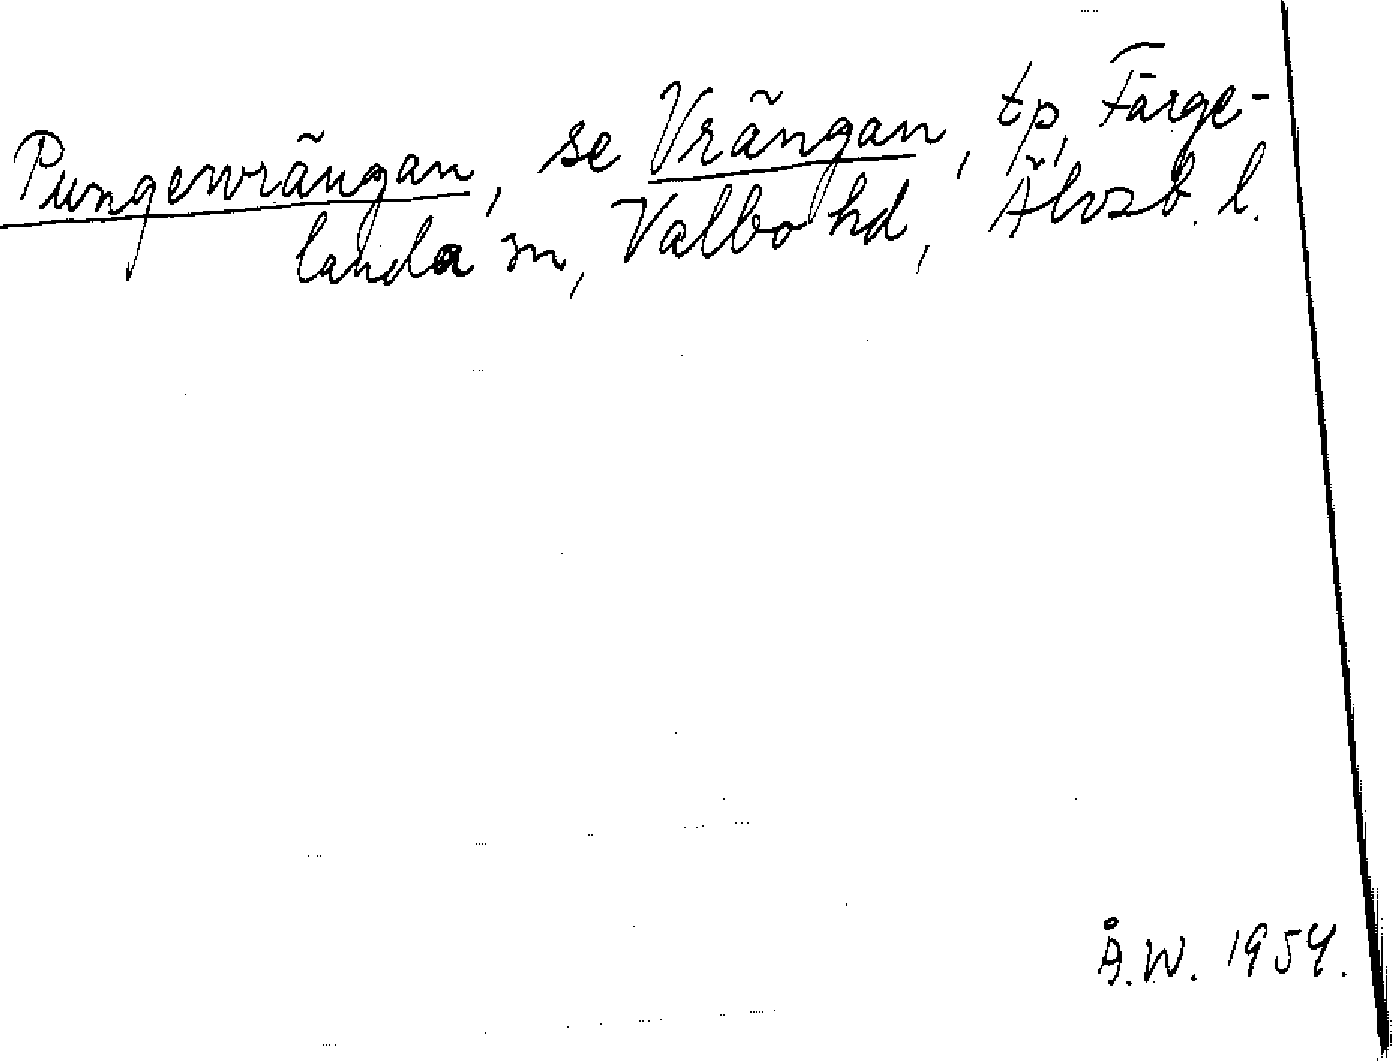 Pungenvrängan, se Vrängan, tp, Färge-
landa sn, Valbo hd, Älvsb. l.
Å.W. 1954.